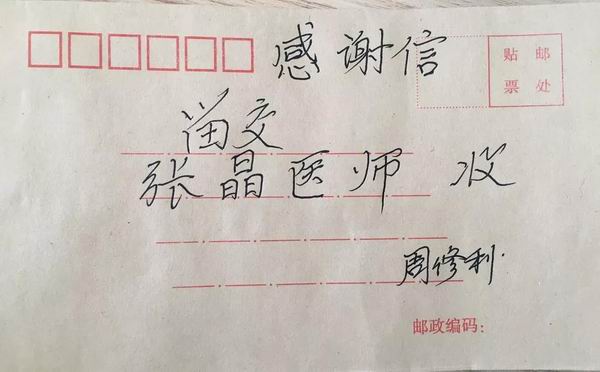 感谢信
贴 邮
票 处
面交
张晶医师 收
周修利.
邮政编码: